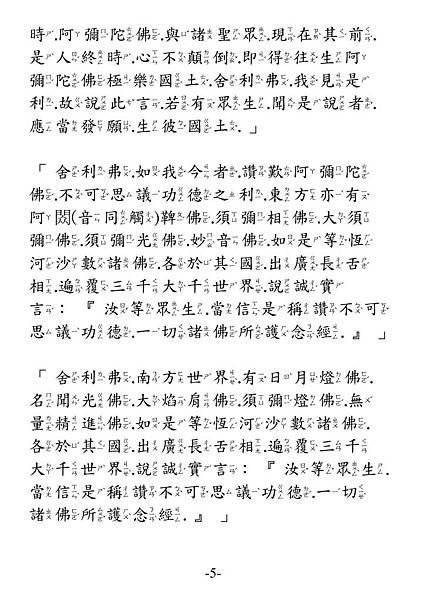 時.阿彌陀佛.與諸聖眾.現在其前.
是人終時.心不顛倒.即得往生阿
彌陀佛極樂國土.舍利弗.我見是
利.故說此言.若有眾生.聞是說者.
應當發願.生彼國土.」
「舍利弗.如我今者.讚歎阿彌陀
佛.不可思議功德之利.東方亦有
阿閦(音同觸)鞞佛.須彌相佛.大須
彌佛.須彌光佛.妙音佛.如是等恆
河沙數諸佛.各於其國.出廣長舌
相.遍覆三千大千世界.說誠實
言：『汝等眾生.當信是稱讚不可
思議功德.一切諸佛所護念經.』」
「舍利弗.南方世界.有日月燈佛.
名聞光佛.大焰肩佛.須彌燈佛.無
量精進佛.如是等恆河沙數諸佛.
各於其國.出廣長舌相.遍覆三千
大千世界.說誠實言：『汝等眾生.
當信是稱讚不可思議功德.一切
諸佛所護念經.』」
-5-